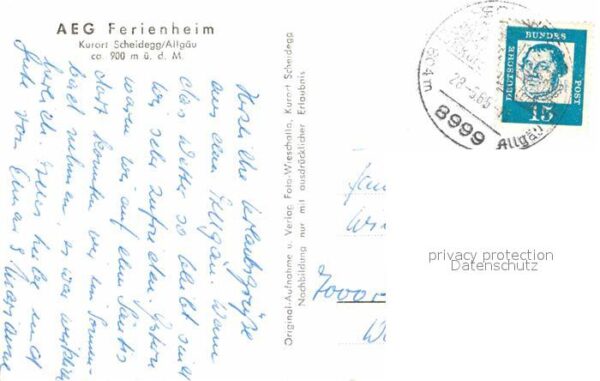 AEG Ferienheim
Kurort Scheidegg/Allgäu
ca. 900 m ü. d. M.
Herzliche Urlaubsgrüße
aus dem Allgäu. Wenn
das Wetter so bleibt sind
wir sehr zufrieden. Gestern
waren wir auf dem Säntis
dort konnten wir ein Sonnen-
bad nehmen, es war wirklich
herrlich.
Original-Aufnahme u. Verlag Foto-Wieschalla, Kurort Scheidegg
Nachbildung nur mit ausdrücklicher Erlaubnis
804 m
28.-5.65
8999
Allgäu
DEUTSCHE
BUNDES
POST
15
7000
privacy protection
Datenschutz